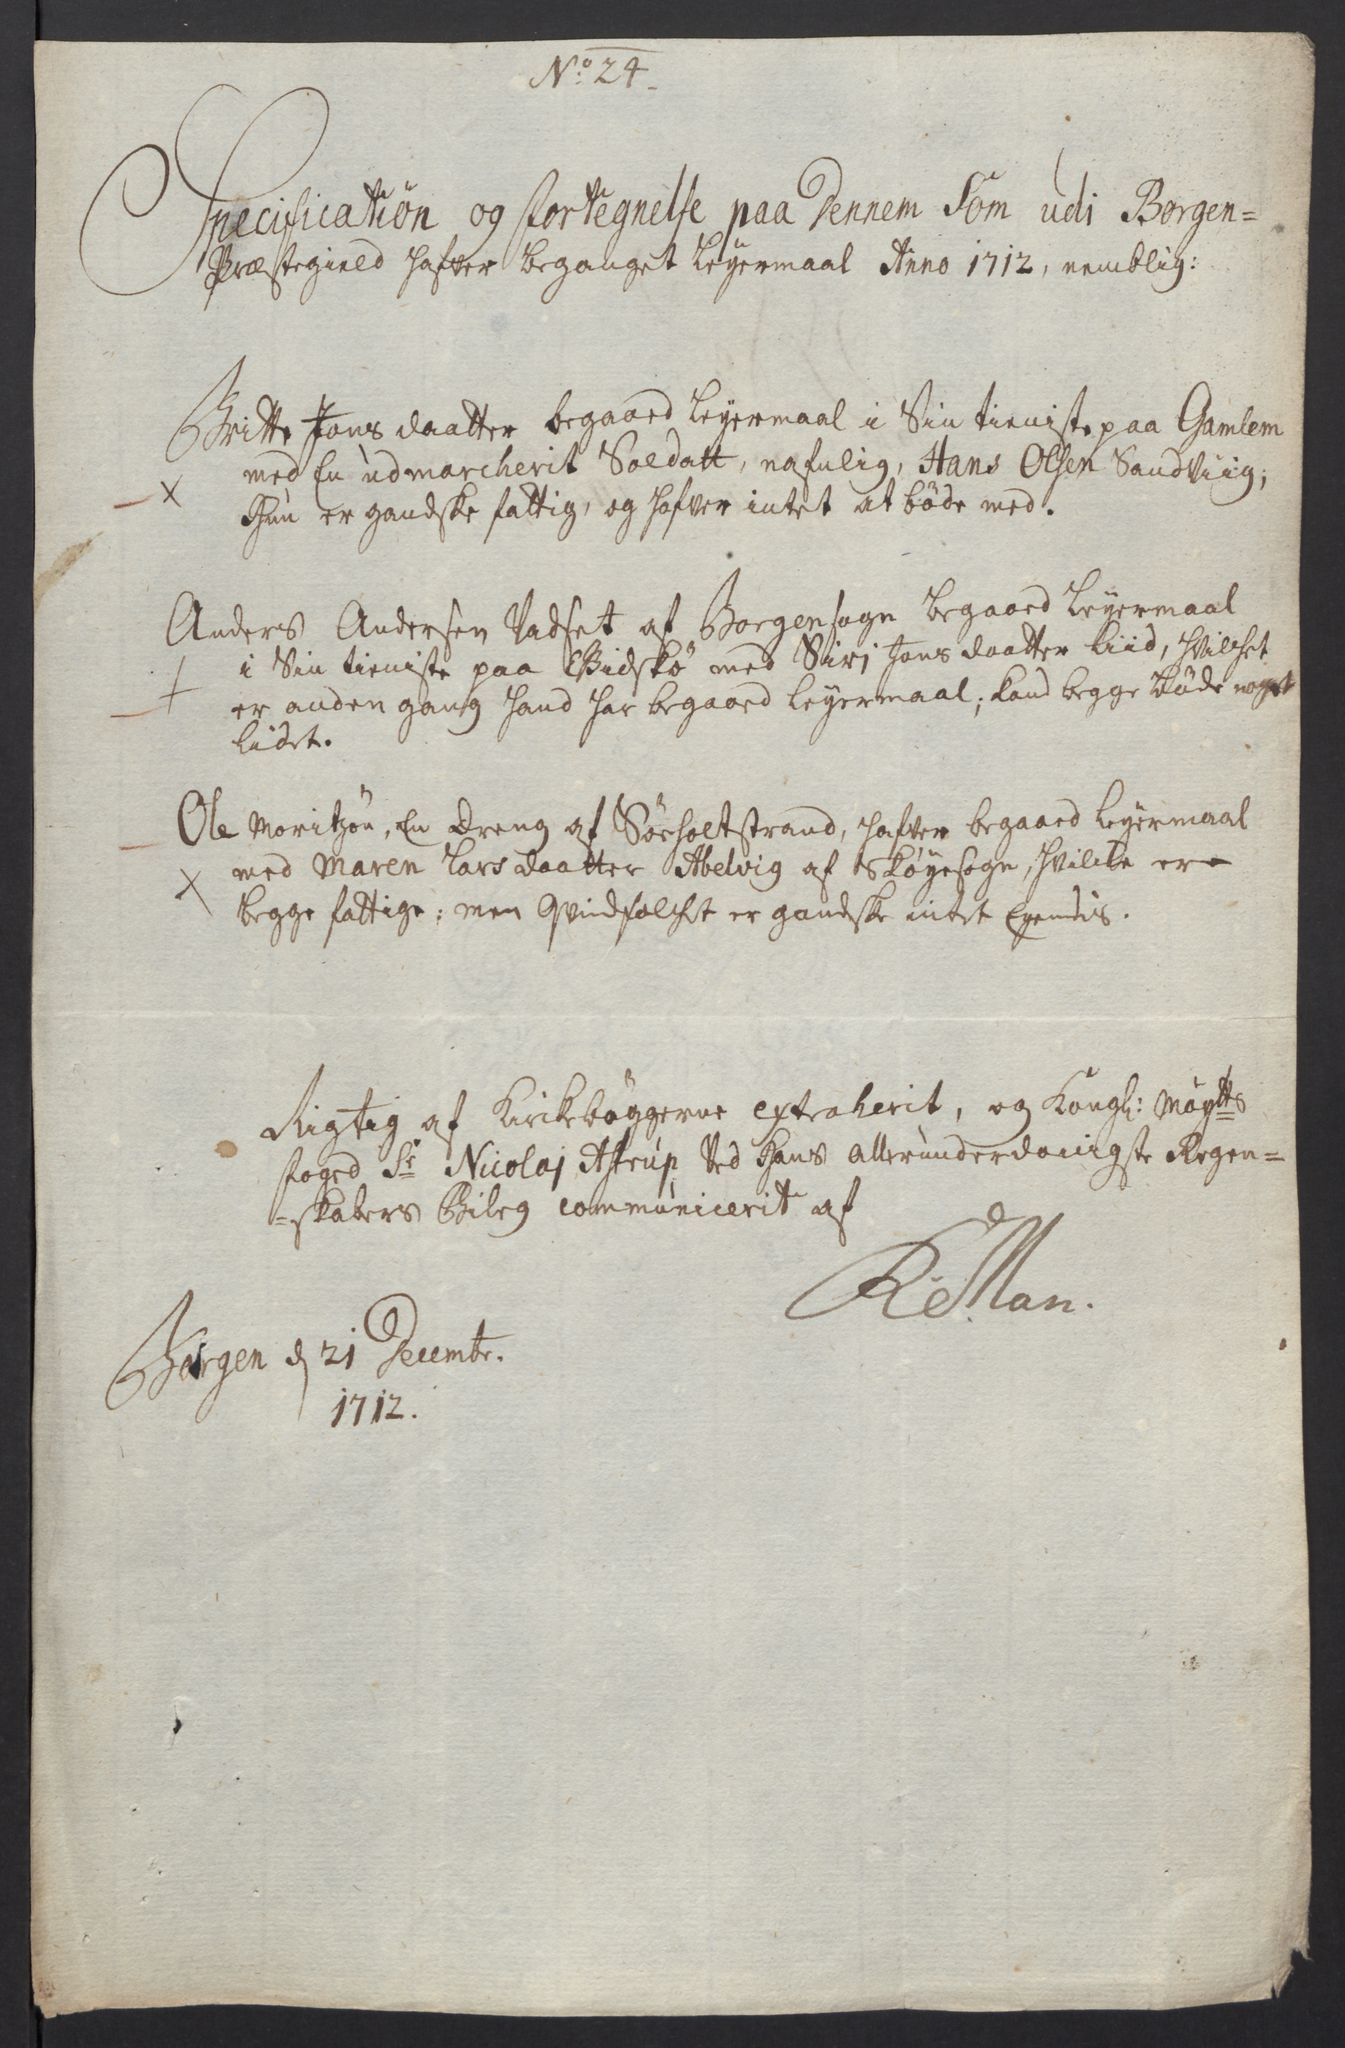 No: 24
Specification og fortegnelse paa dennem som udi Borgen=
Præstegield hafver beganget Leyermaal Anno 1712, nemblig:
Britte Jons daatter begaaed leyermaal i Sin tieniste paa Gamlem
med En udmarcherit Soldatt, nafnlig, Hans Olsen Sandviig;
x
Hun er gandske fattig, og hafver intet at böde med.
Anders Andersen Vadset af Borgensogn begaaed Leyermaal
i Sin tieniste paa Gidskö med Siri Jons daatter Liid, hvilchet
+
er anden gang hand har begaaed Leyermaal; kand begge böde noget
lidet.
Ole Moritzön, En Dreng af Sörholtstrand, hafver begaaed Leyermaal
med Maren Lars daatter Abelvig af Sköyesogn, hvilche ere
x
begge fattige: men qvindfolchet er gandske intet Eyendis.
Rigtig af Kirkebøggerne extraherit, og Kongl: Maytts
foged Sr Nicolaj Astrup Ved Hans allerunderdanigste Regen=
=skabers Bileg communicerit af
Borgen d 21 Decembr.
1712.